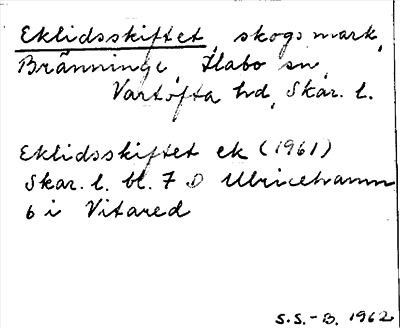 Eklidsskiftet, skogsmark,
Bränninge, Habo sn,
Vartofta hd, Skar. l.
Eklidsskiftet ek (1961)
Skar. l. bl. 7 D Ulricehamn
6 i Vitared
S.S.-B. 1962